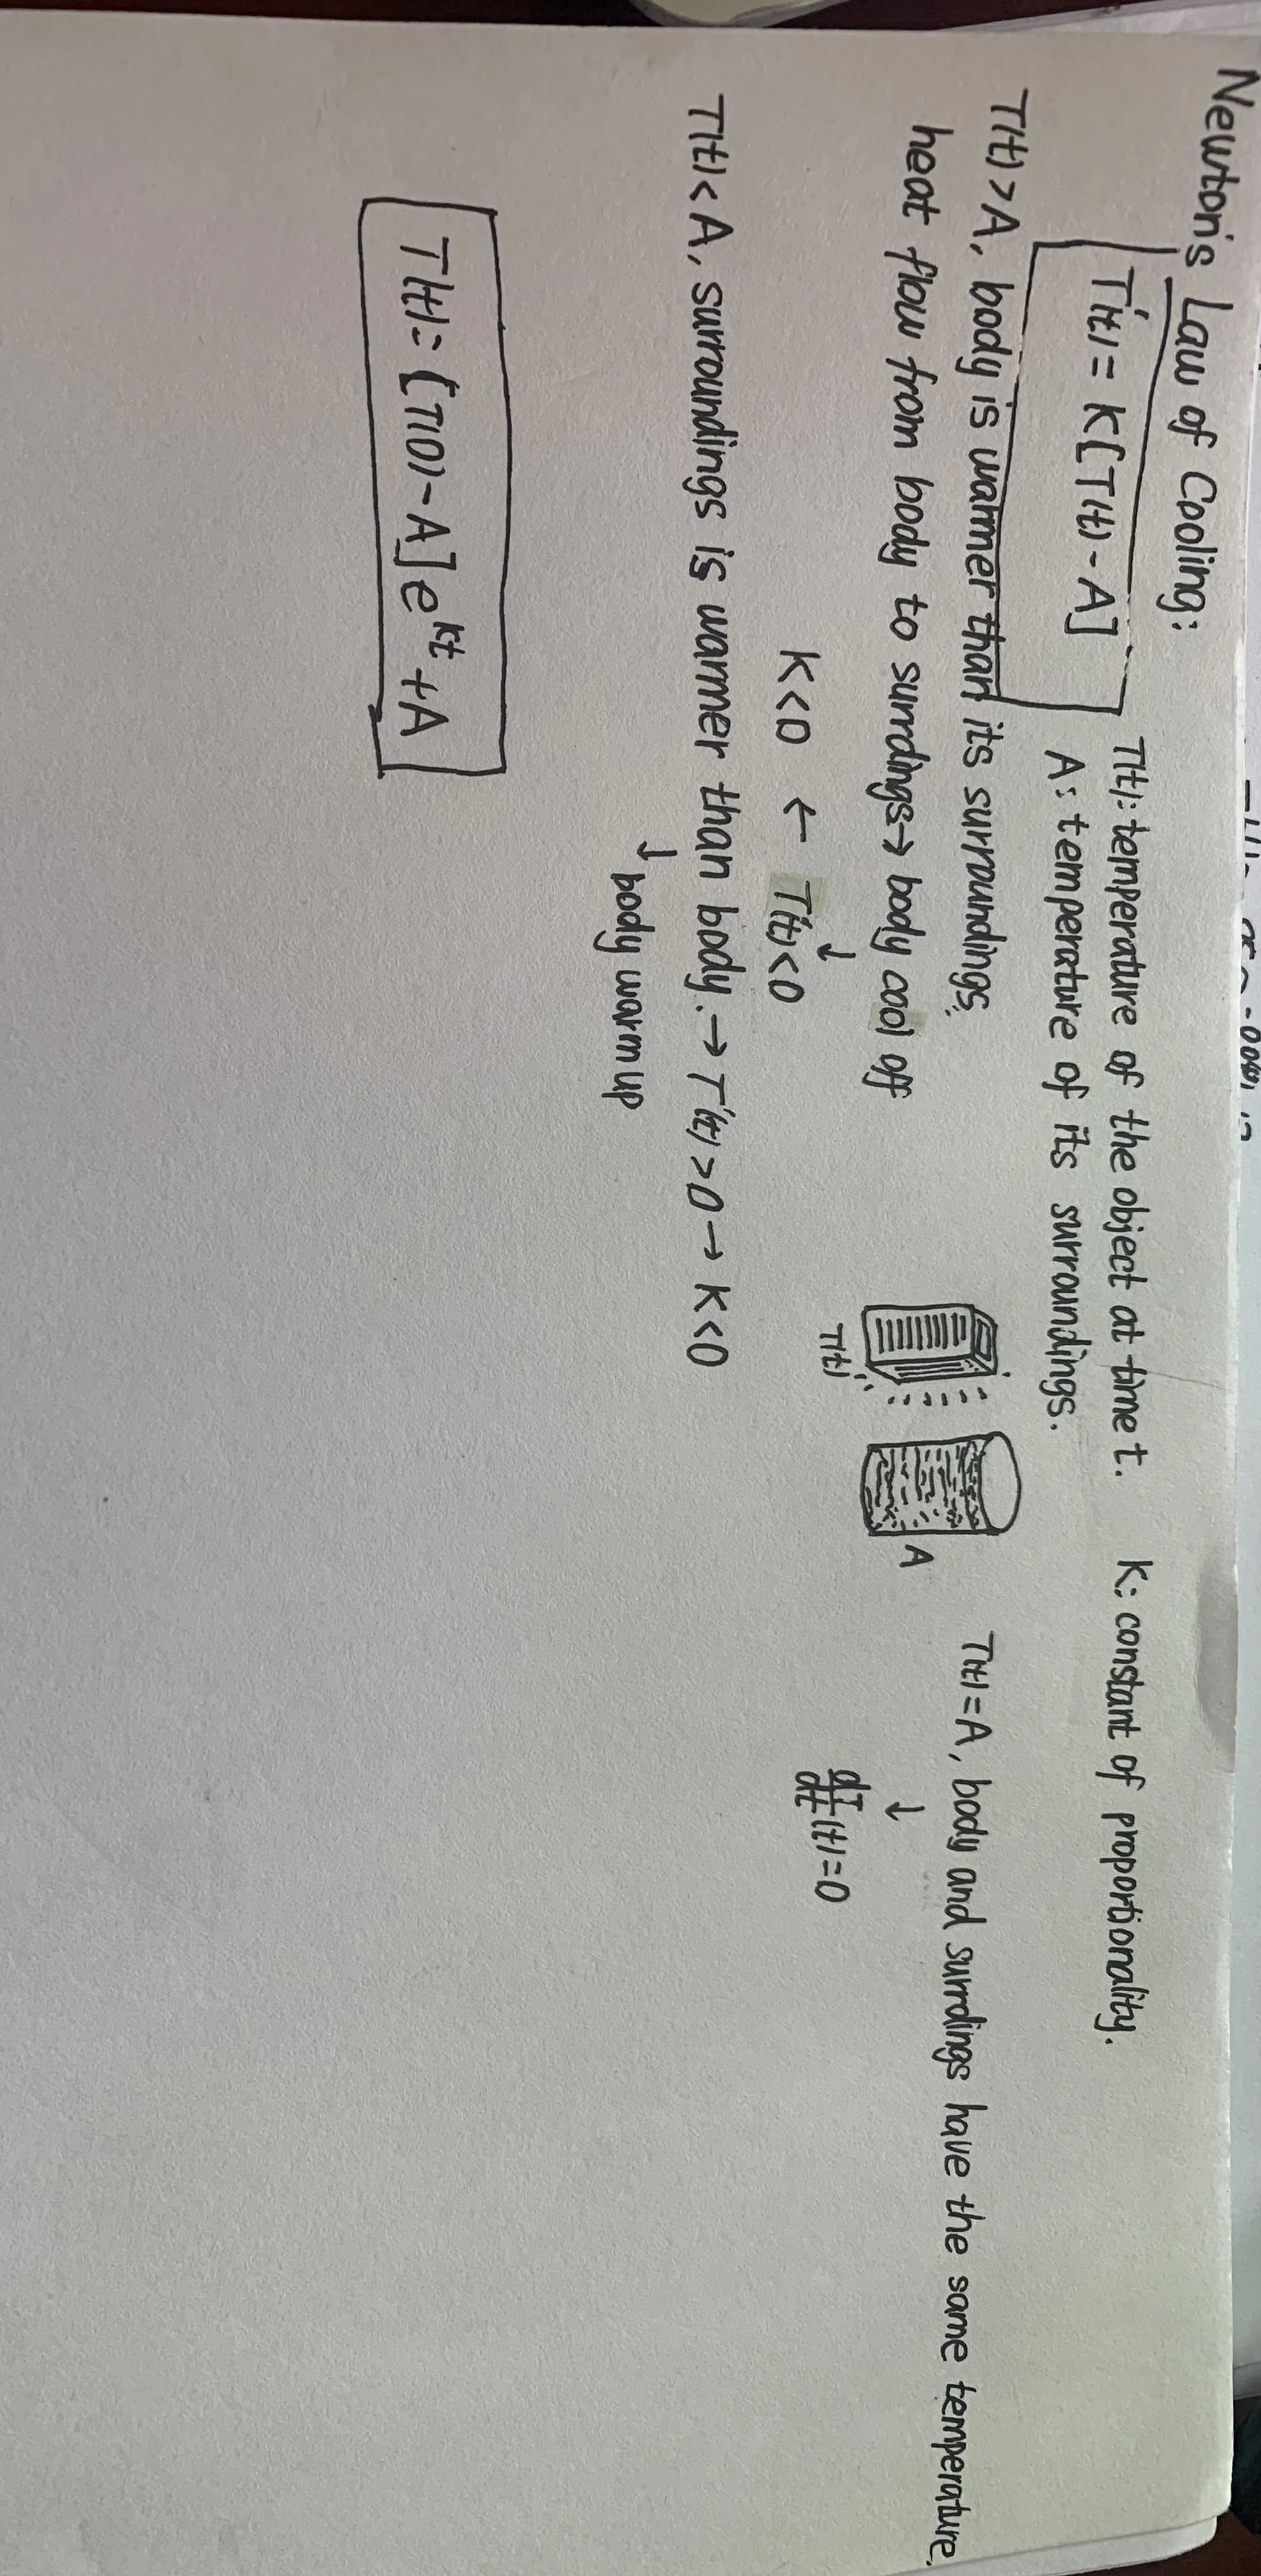 Newton's Law of Cooling:
T'(t) = K[T(t) - A]
T(t): temperature of the object at time t.
K: constant of proportionality.
A: temperature of its surroundings.
T(t) > A, body is warmer than its surroundings,
heat flow from body to surrdings → body cool off
↓
K < 0 ← T'(t) < 0
T(t)
A
T(t) = A, body and surrdings have the same temperature.
↓
dT/dt (t) = 0
T(t) < A, surroundings is warmer than body. → T'(t) > 0 → K < 0
↓ body warm up
T(t) = [T(0) - A] e^kt + A